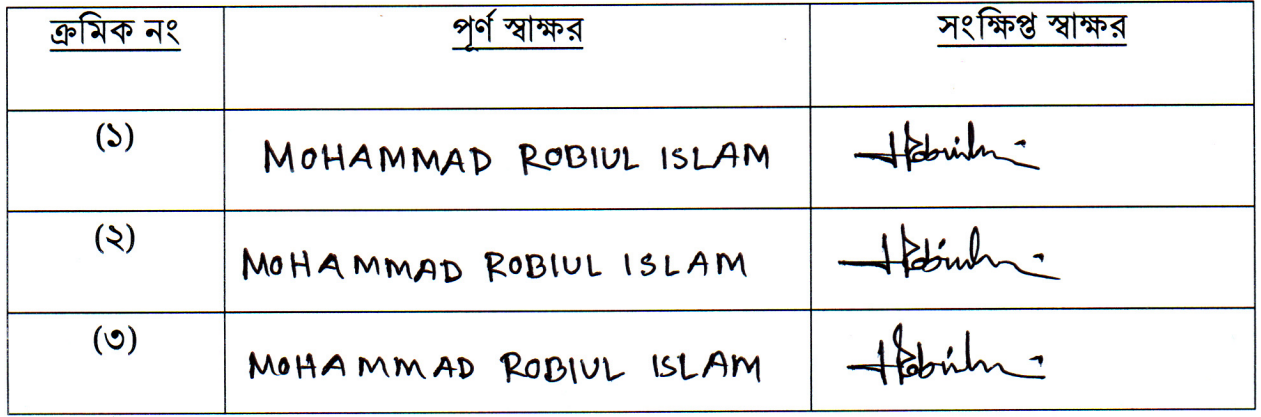 ক্রমিক নং পূর্ণ স্বাক্ষর সংক্ষিপ্ত স্বাক্ষর
(১) MOHAMMAD ROBIUL ISLAM Robiul
(২) MOHAMMAD ROBIUL ISLAM Robiul
(৩) MOHAMMAD ROBIUL ISLAM Robiul